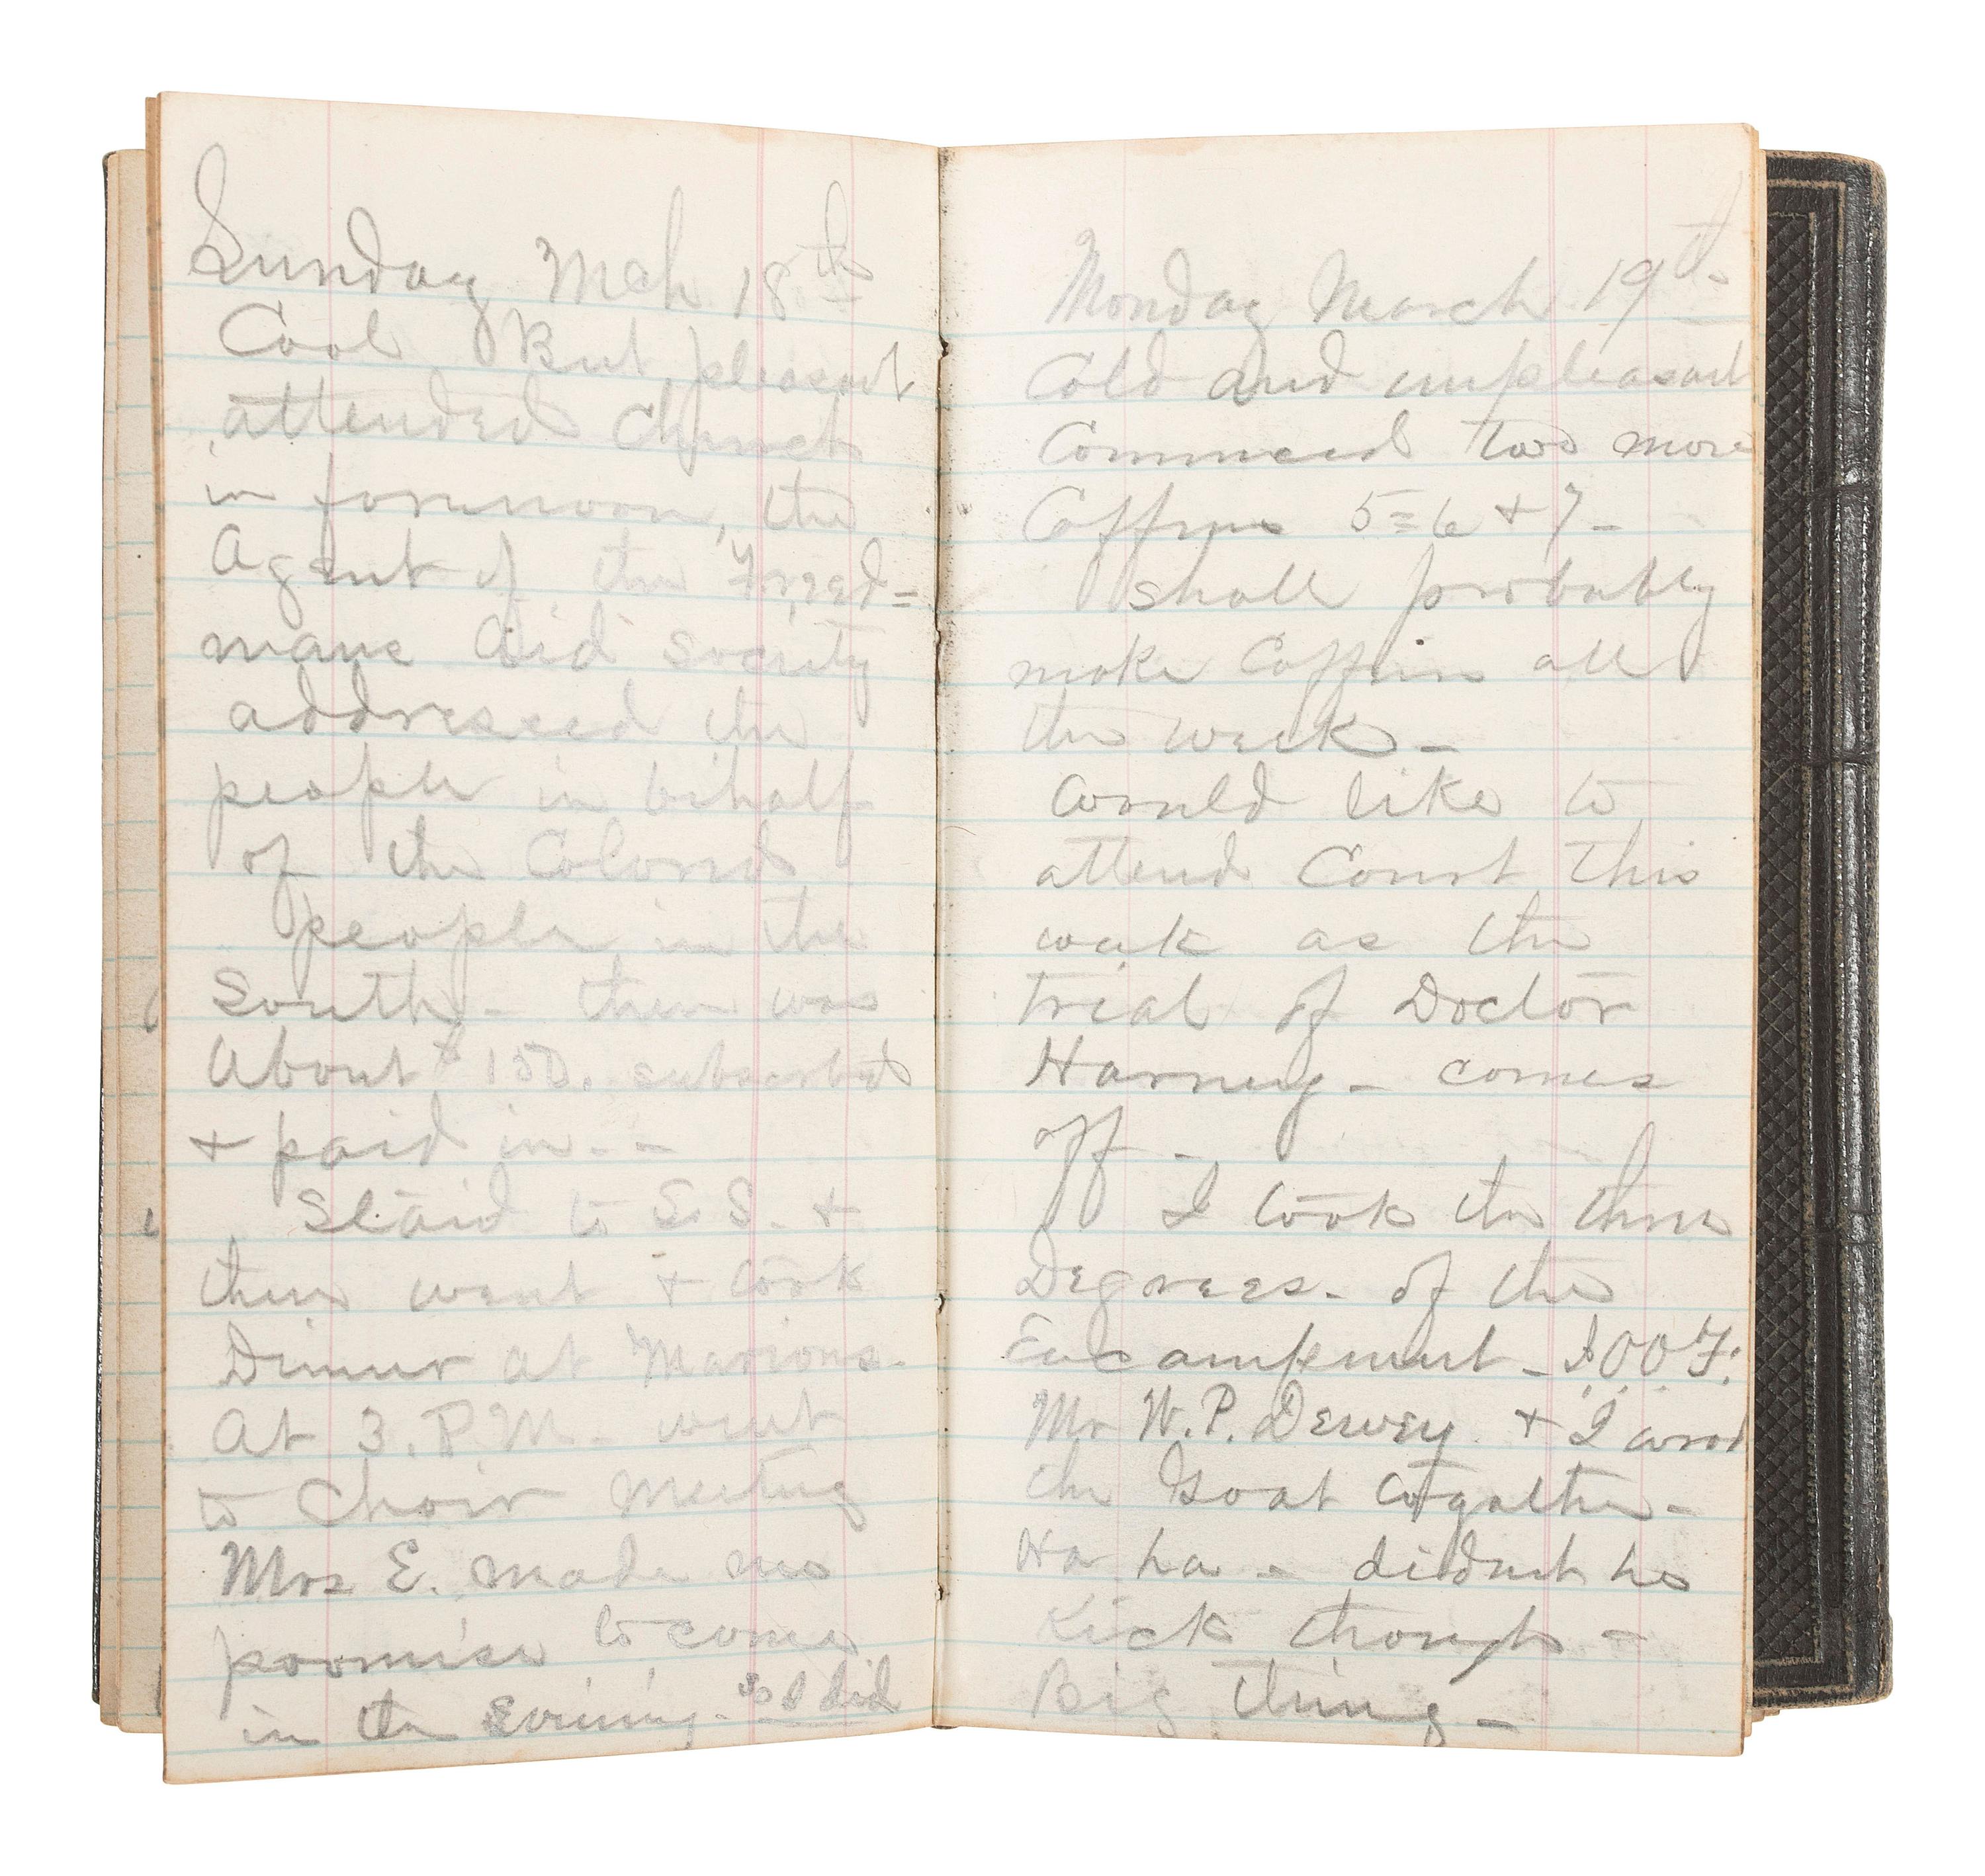 Sunday Mch 18th
Cool But pleasant
attended Church
in forenoon, the
Agent of the Freed=
mans Aid Society
addressed the
people in behalf
of the Colored
people in the
South - there was
About $150. subscribed
+ paid in - -
Staid to S. S. +
then went + took
Dinner at Marions -
At 3. P. M. went
to Choir Meeting
Mrs E. made no
promise to come
in the Evening - so I did
Monday March 19th
Cold and unpleasant
Commced two more
Coffins 5=6 + 7 -
shall probably
make Coffins all
the week -
Would like to
attend Court this
week as the
trial of Doctor
Harvey - comes
off -
I took the three
Degrees - of the
Encampment - I.O.O.F.
Mr W. P. Dewey + I
the Goat together -
Ha ha - didnt he
Kick though -
Big thing -